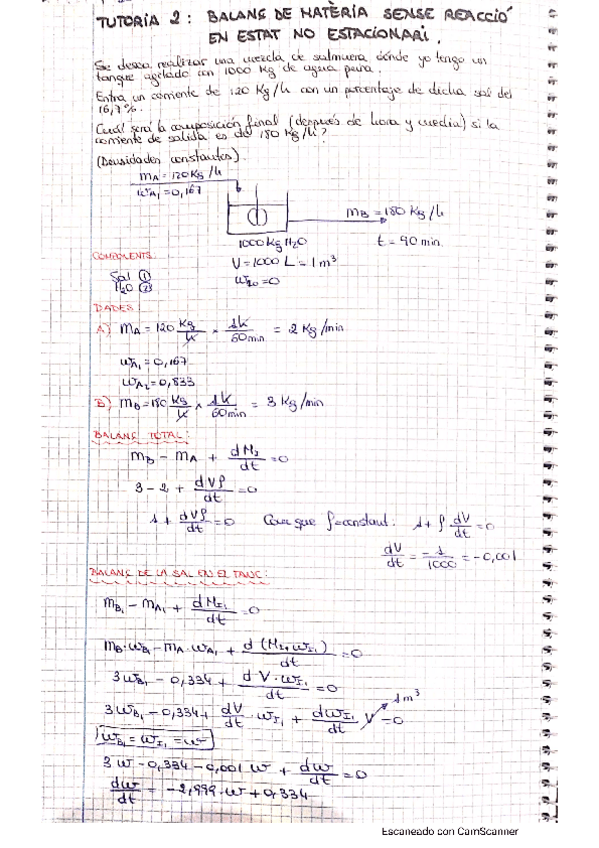 TUTORIA 2: BALANÇ DE MATÈRIA SENSE REACCIÓ
EN ESTAT NO ESTACIONARI.
Se desea realizar una mezcla de salmuera dónde yo tengo un
tanque agitado con 1000 Kg de agua pura.
Entra un corriente de 120 Kg/h con un porcentaje de dicha sal del
16,7%.
Cuál será la composición final (después de hora y media) si la
corriente de salida es de 180 Kg/h?
(Densidades constantes)
mA = 120 Kg/h
wA1 = 0,167
mB = 180 Kg/h
1000 Kg H2O
t = 90 min.
V = 1000 L = 1 m³
w20 = 0
COMPONENTS:
Sal ①
H2O ②
DADES:
A) mA = 120 Kg/h × 1h/60min = 2 Kg/min
wA1 = 0,167
wA2 = 0,833
B) mB = 180 Kg/h × 1h/60min = 3 Kg/min
BALANÇ TOTAL:
mB - mA + dMI/dt = 0
3 - 2 + dVρ/dt = 0
1 + dVρ/dt = 0 Com que ρ=constant: 1 + ρ dV/dt = 0
dV/dt = -1/1000 = -0,001
BALANÇ DE LA SAL EN EL TANC:
mB1 - mA1 + dMI1/dt = 0
mB·wB1 - mA·wA1 + d(MI·wI1)/dt = 0
3wB1 - 0,334 + d V·wI1/dt = 0
1m³
3wB1 - 0,334 + dV/dt · wI1 + dwI1/dt V = 0
wB1 = wI1 = w
3w - 0,334 - 0,001w + dw/dt = 0
dw/dt = -2,999·w + 0,334
Escaneado con CamScanner